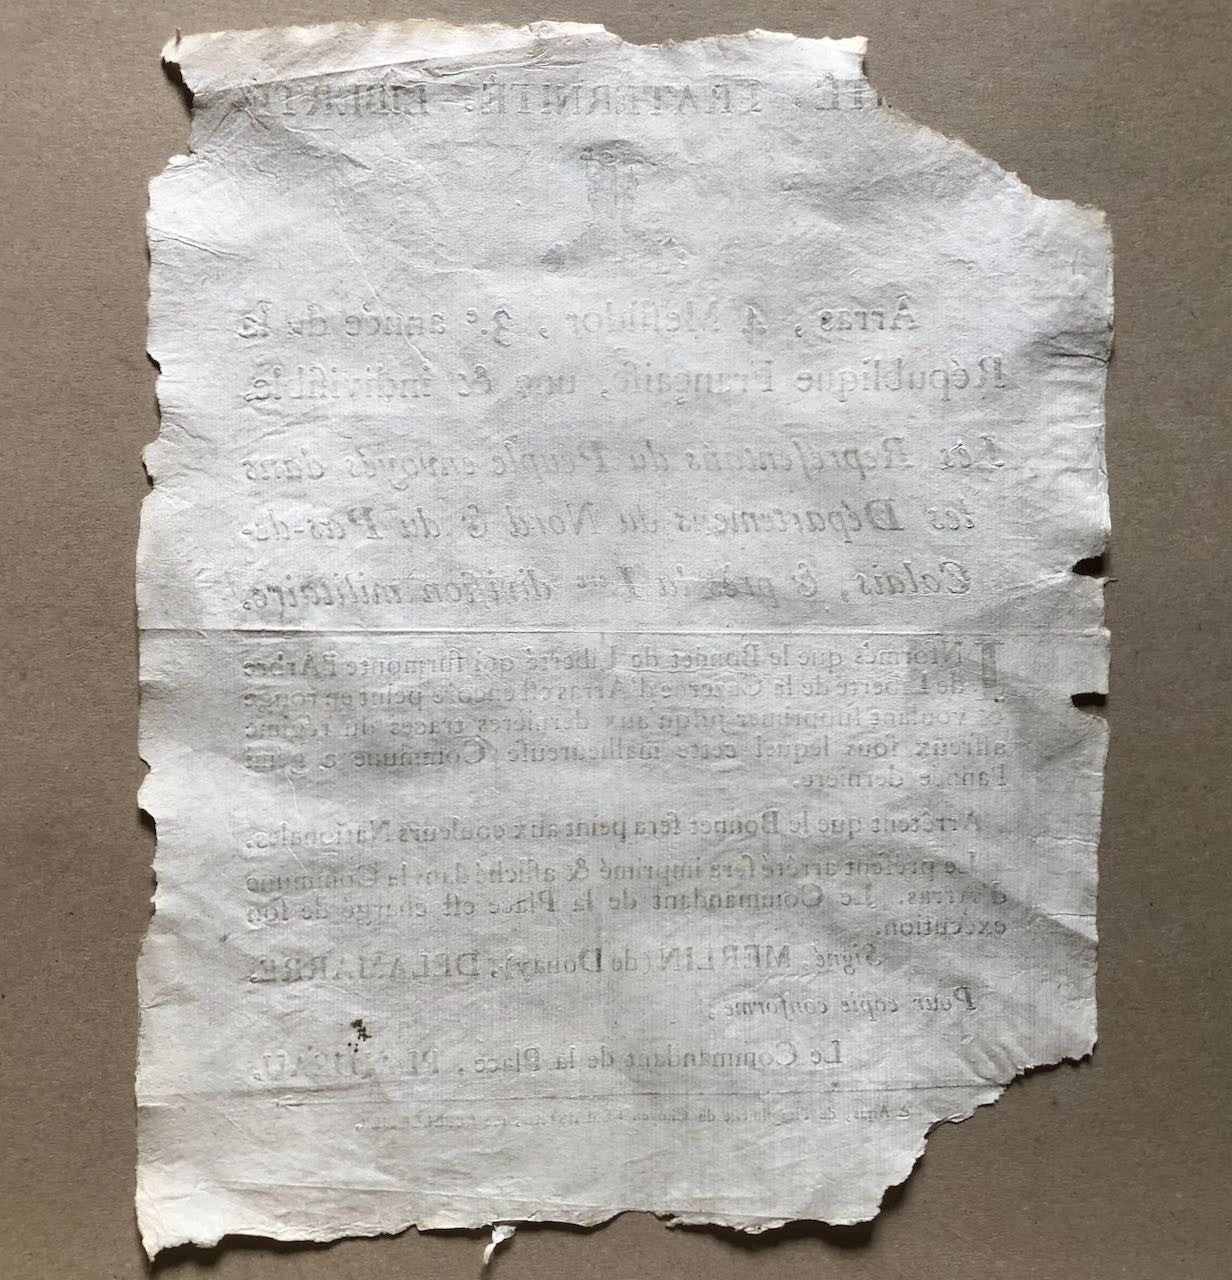 ITÉ, FRATERNITÉ, LIBERTÉ
Arras, 4 Meſſidor, 3.e année de la
République Françaiſe, une & indiviſible.
Les Repréſentans du Peuple envoyés dans
les Départemens du Nord & du Pas-de-
Calais, & près la 1.ere diviſion militaire,
INformés que le Bonnet de Liberté qui ſurmonte l'Arbre
de Liberté de la Cazerne d'Arras eſt encore peint en rouge
& voulant ſupprimer juſqu'aux dernières traces du régime
affreux ſous lequel cette malheureuſe Commune a gémi
l'année dernière.
Arrêtent que le Bonnet ſera peint aux couleurs Nationales.
Le préſent arrêté ſera imprimé & affiché dans la Commune
d'Arras. Le Commandant de la Place eſt chargé de ſon
exécution.
Signé, MERLIN (de Douay), DELAMARRE.
Pour copie conforme,
Le Commandant de la Place,
de l'Imprimerie du